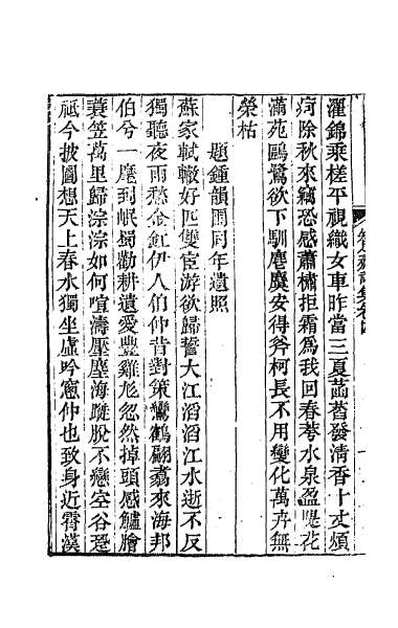 濯錦乘槎平視織女車昨當三夏菡舊發清香十丈頻
疴除秋來竊恐感蕭橚拒霜為我回春萼水泉盈隄花
滿苑鷗鷺欲下馴麀麌安得斧柯長不用變化萬卉無
榮枯
題鍾韻雨同年遺照
蘇家軾轍好匹雙宦游欲歸誓大江滔滔江水逝不反
獨聽夜雨愁金釭伊人伯仲昔對策鸞鶴翩翥來海邦
伯兮一麾到岷蜀勸耕遺愛豐雞尨忽然掉頭感鱸膾
蓑笠萬里歸淙淙如何喧濤壓塵海蹝脫不戀空谷跫
祗今披圖想天上春水獨坐虛吟窻仲也致身近霄漢